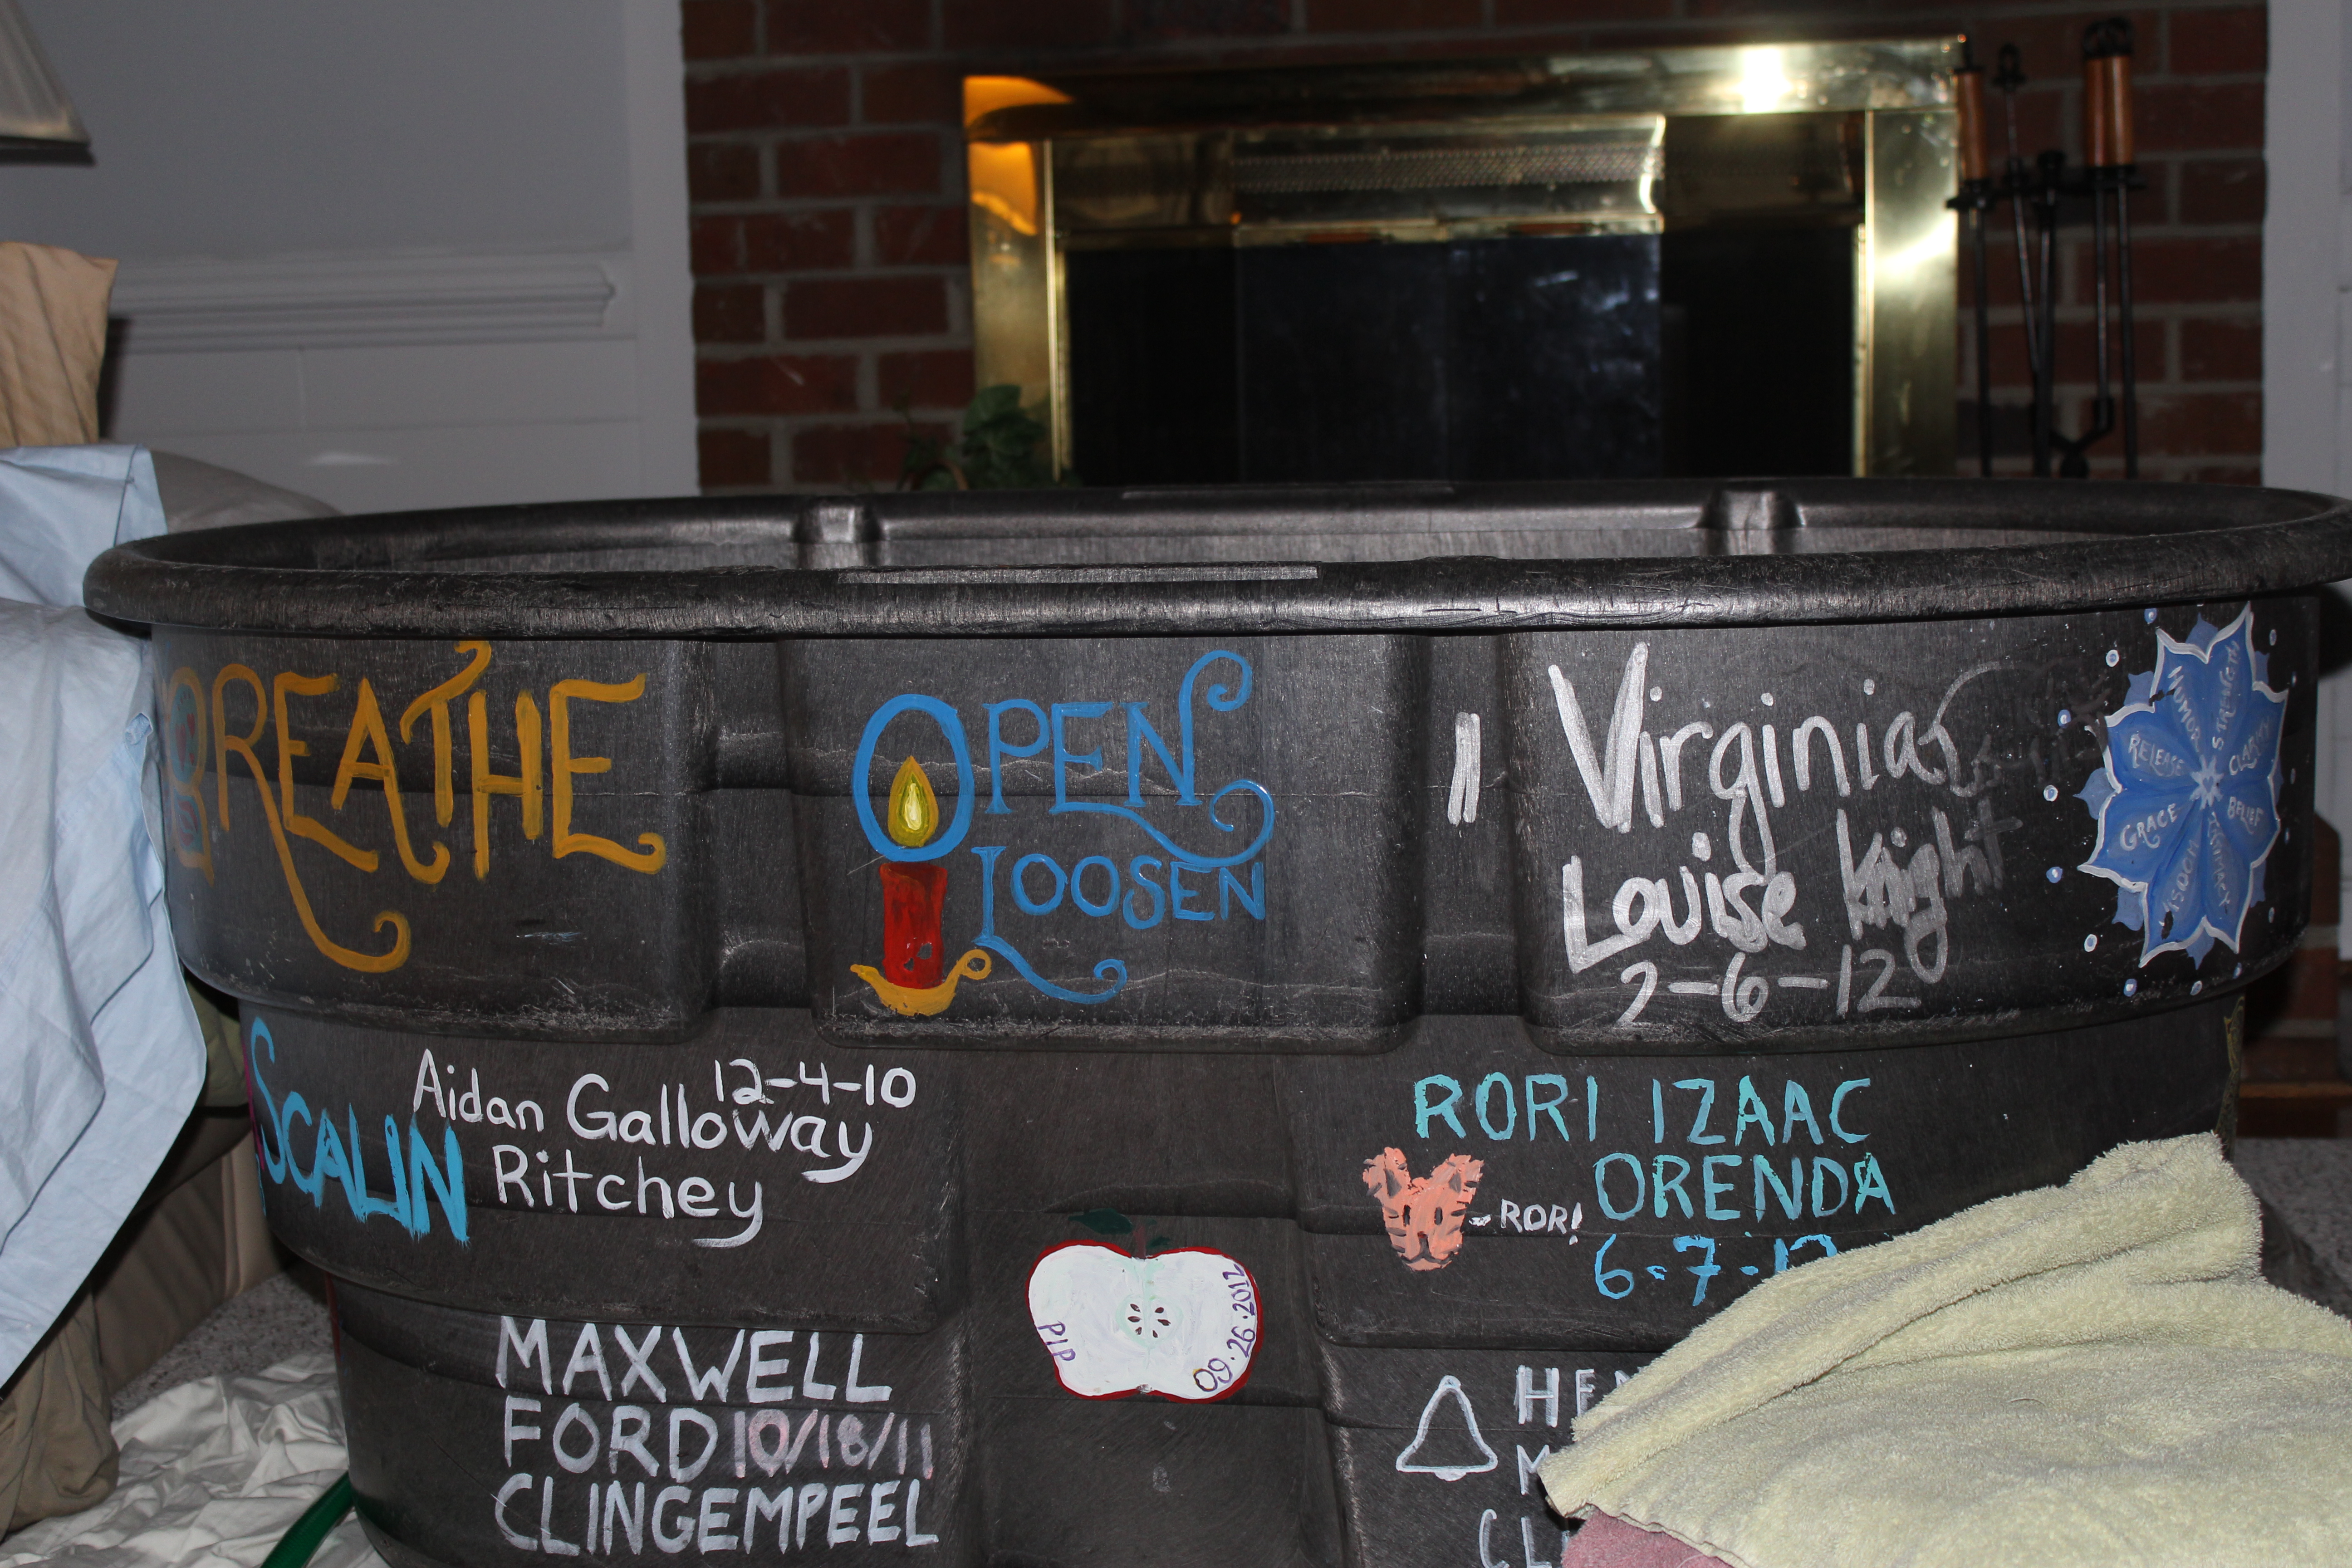 BREATHE
OPEN
LOOSEN
Virginia
Louise Knight
2-6-12
HUMOR
STRENGTH
RELEASE
CLARITY
GRACE
BELIEF
INTIMACY
SCALIN
12-4-10
Aidan Galloway
Ritchey
RORI IZAAC
ORENDA
- RORI
6-7-12
PIP
09.26.2012
MAXWELL
FORD 10/18/11
CLINGEMPEEL
HE
M
CL